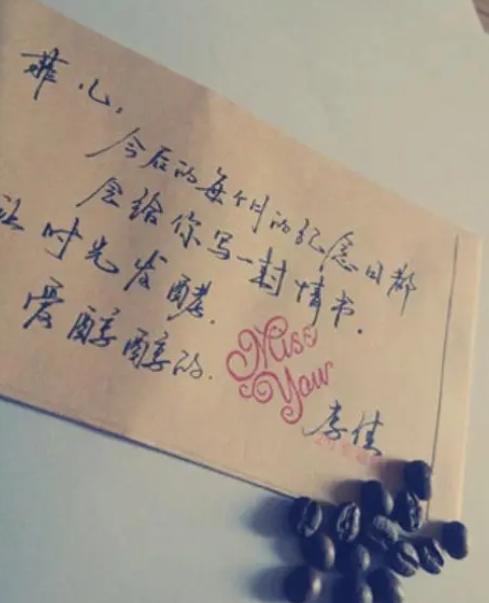 菲心,
今后的每个月的纪念日都
会给你写一封情书.
让时光发酵.
爱醇醇的.
Miss
You
李佳